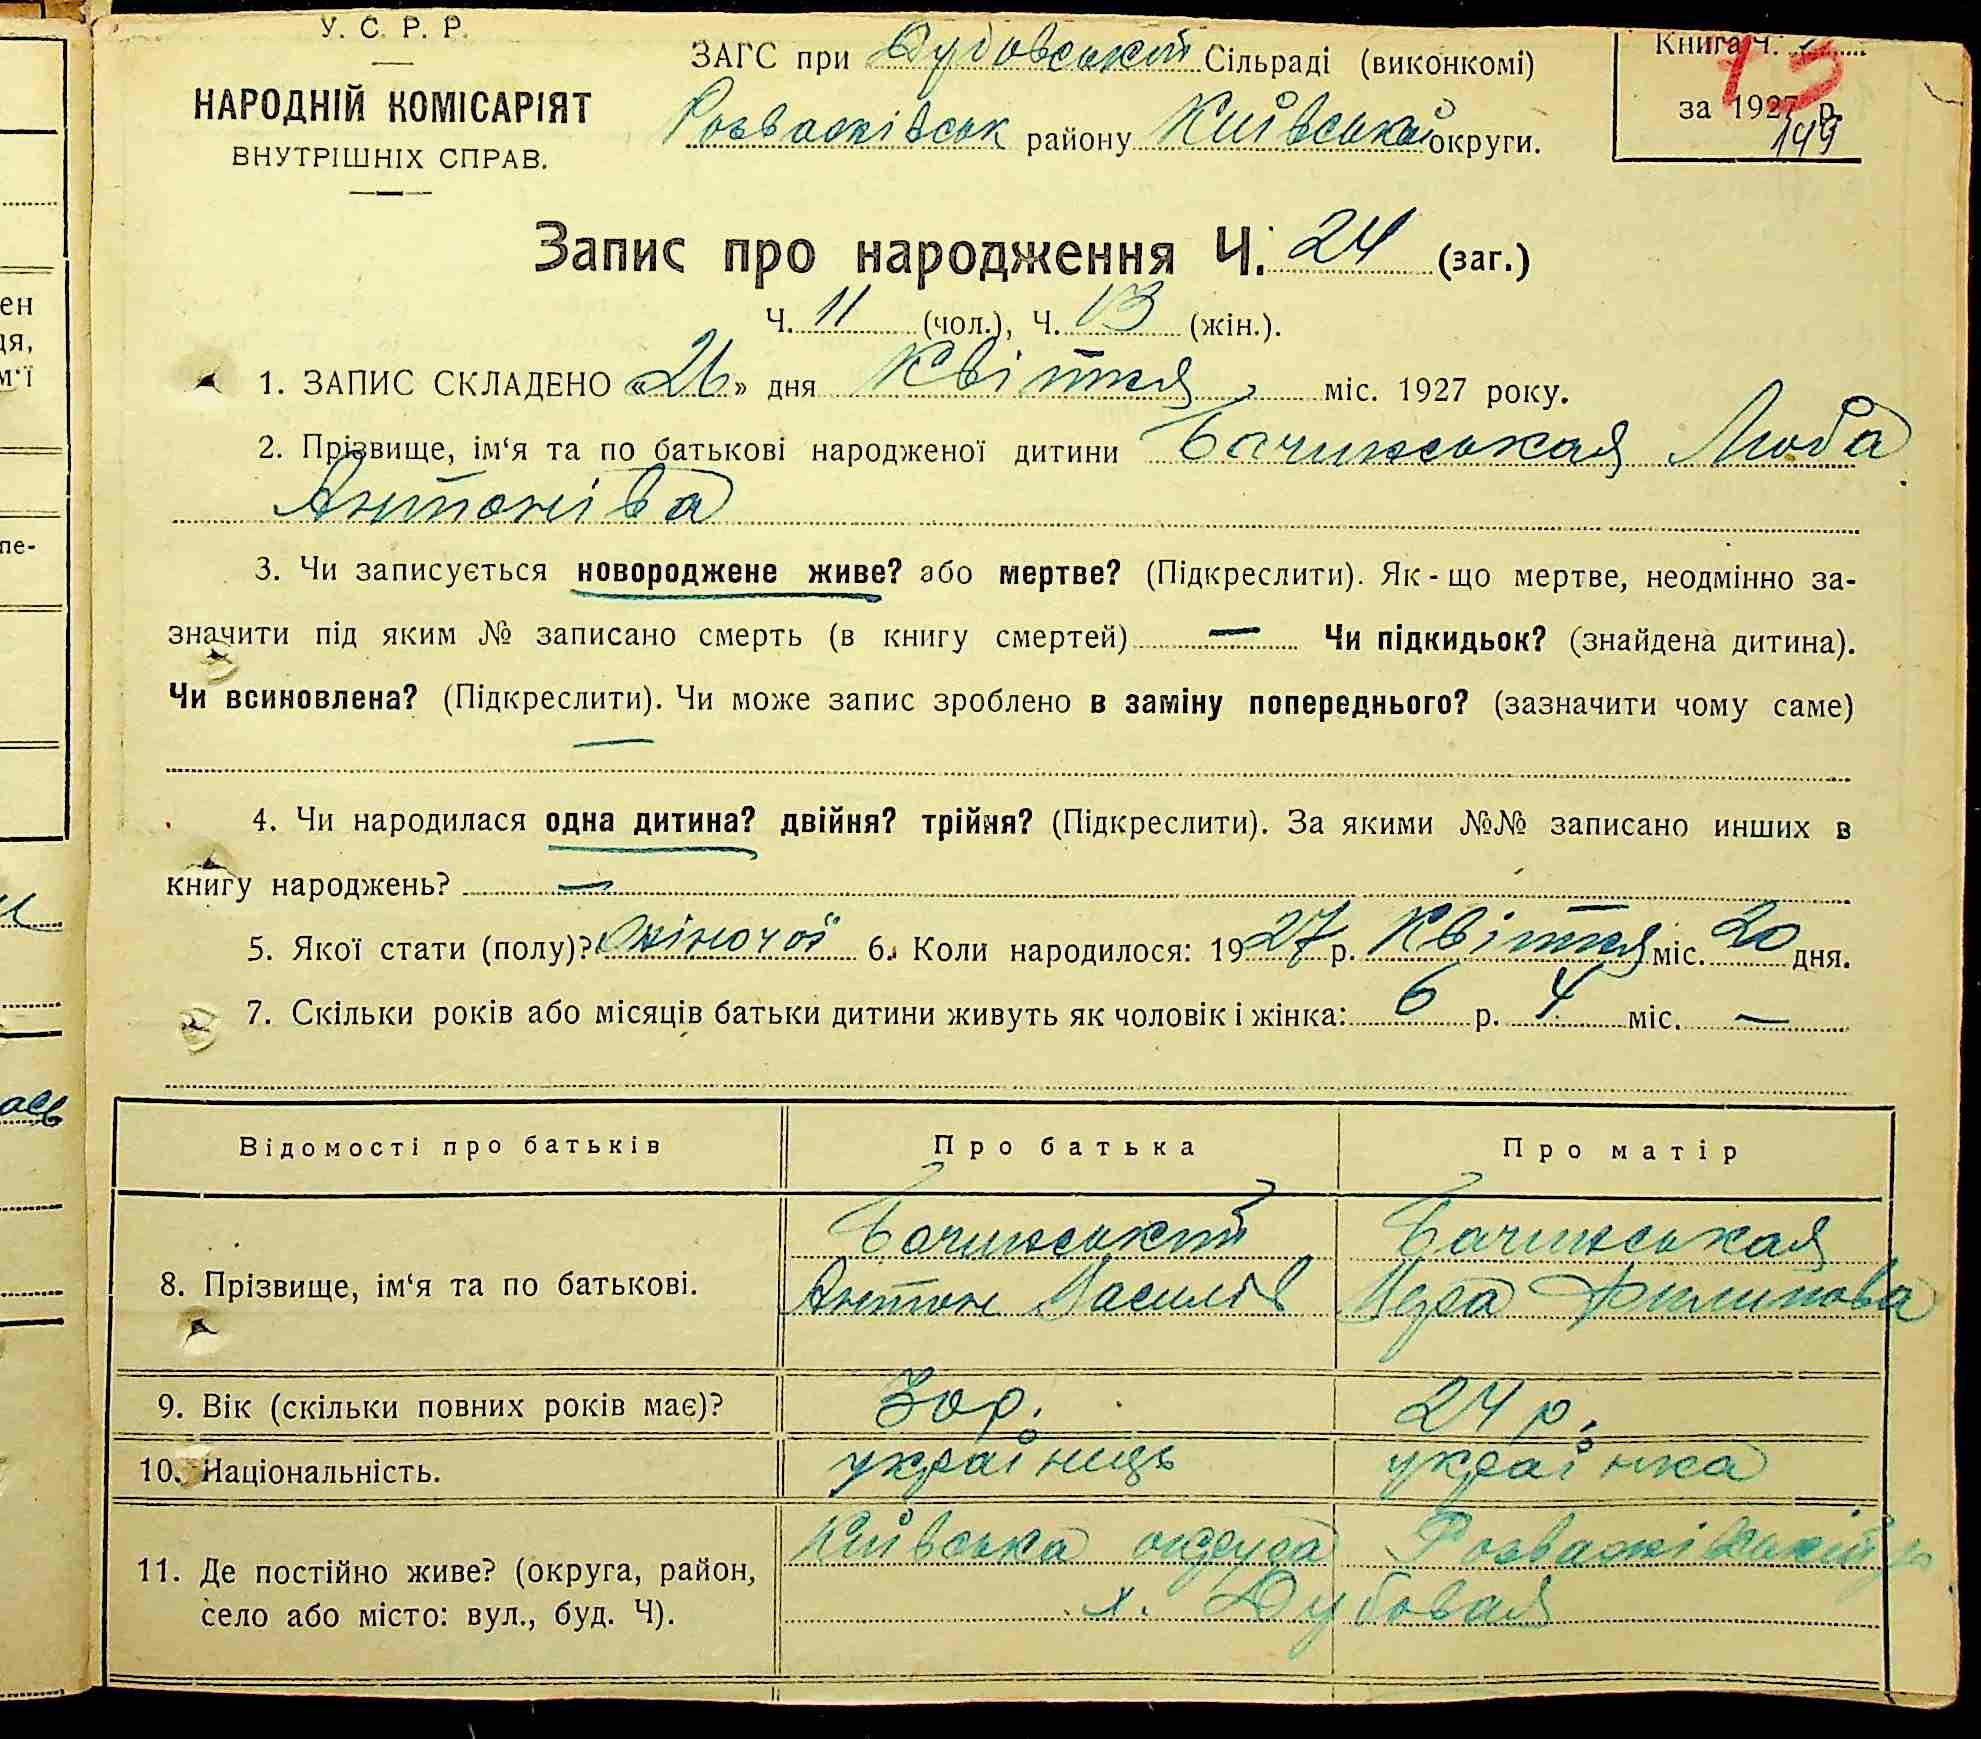 У. С. Р. Р.
НАРОДНІЙ КОМІСАРІЯТ
ВНУТРІШНІХ СПРАВ.
ЗАГС при Дубовський Сільраді (виконкомі)
Розважівськ району Київської округи.
Книга Ч.
за 1927 р.
15
149
Запис про народження Ч. 24 (заг.)
Ч. 11 (чол.), Ч. 13 (жін.).
1. ЗАПИС СКЛАДЕНО «26» дня Квітня міс. 1927 року.
2. Прізвище, ім‘я та по батькові народженої дитини Бачинськая Люба
Антоніва
3. Чи записується новороджене живе? або мертве? (Підкреслити). Як-що мертве, неодмінно за-
значити під яким № записано смерть (в книгу смертей) — Чи підкидьок? (знайдена дитина).
Чи всиновлена? (Підкреслити). Чи може запис зроблено в заміну попереднього? (зазначити чому саме)
—
4. Чи народилася одна дитина? двійня? трійня? (Підкреслити). За якими №№ записано инших в
книгу народжень? —
5. Якої стати (полу)? жіночої 6. Коли народилося: 1927 р. Квітня міс. 20 дня.
7. Скільки років або місяців батьки дитини живуть як чоловік і жінка: 6 р. 4 міс. —
Відомості про батьків Про батька Про матір
8. Прізвище, ім‘я та по батькові. Бачинський Бачинськая
Антон Василів Филипова
9. Вік (скільки повних років має)? 30 р. 24 р.
10. Національність. українць українка
11. Де постійно живе? (округа, район, Київська округа Розважівський р
село або місто: вул., буд. Ч). х. Дубовая
ен
ця,
м‘ї
пе-
ась